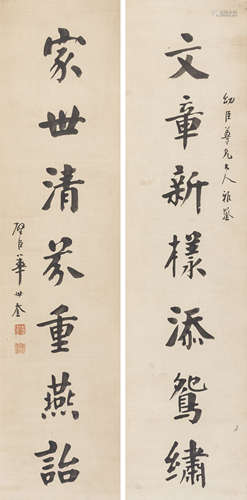 幼臣尊兄大人雅鑒
文章新樣添鴛繡
家世清芬重燕詒
啓臣華世奎